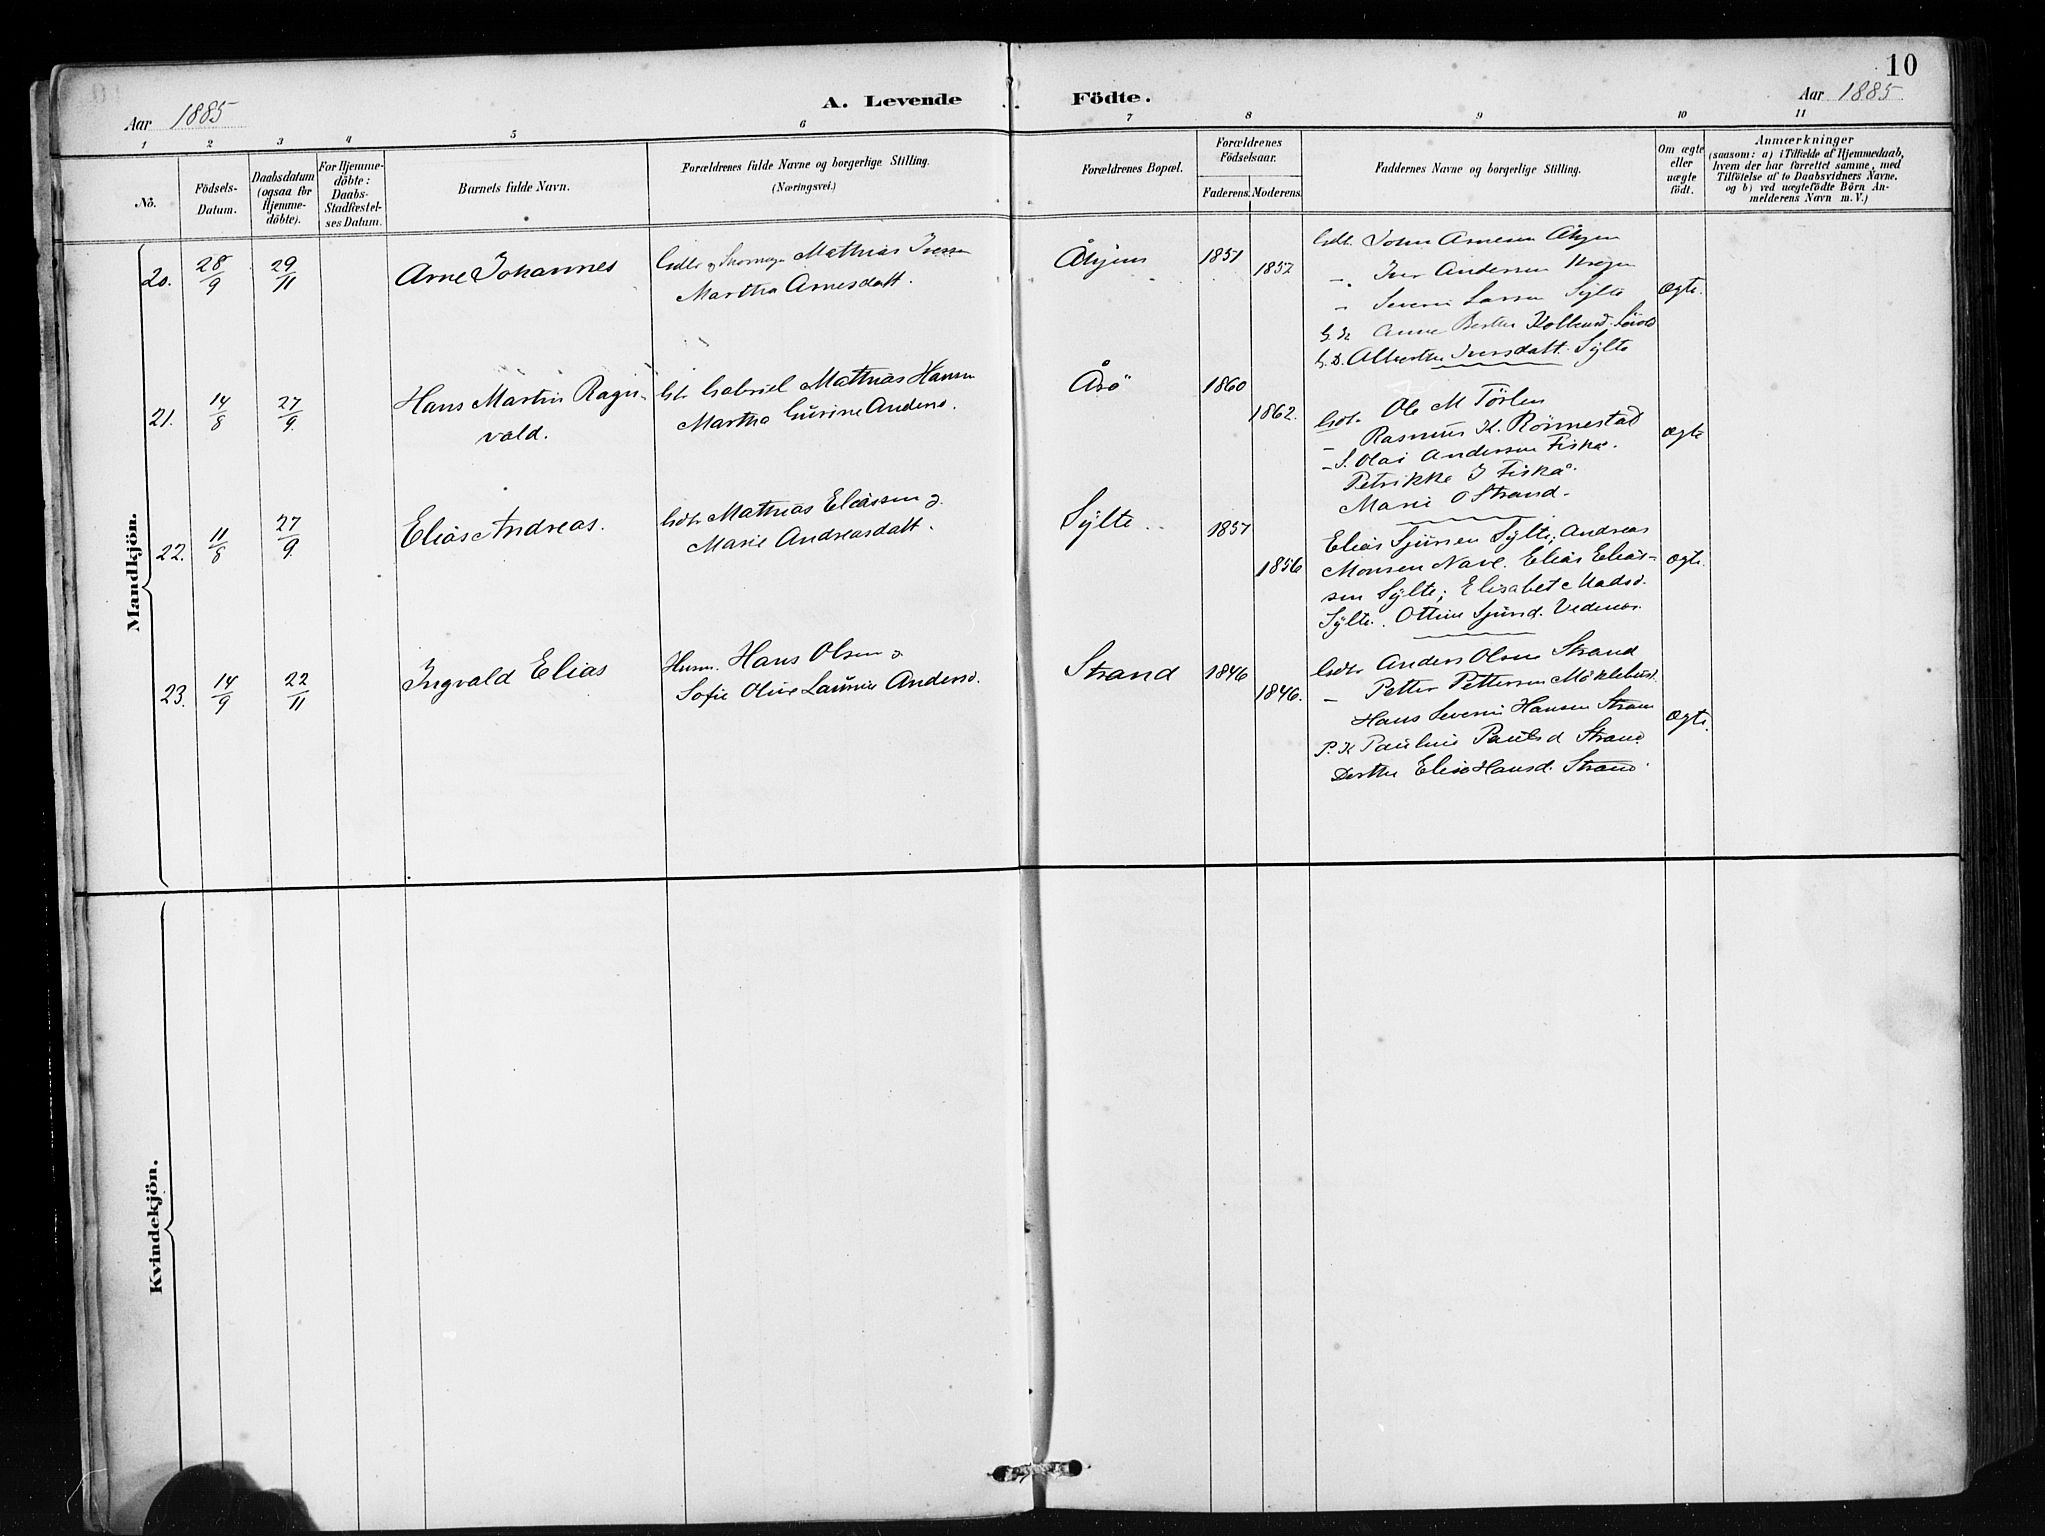 10
Aar 1885
A. Levende Födte.
Aar 1885
1 2 3 4 5 6 7 8 9 10 11
No.
Födsels-Datum.
Daabsdatum (ogsaa for Hjemme-döbte).
For Hjemme-döbte: Daabs-Stadfæstel-ses Datum.
Barnets fulde Navn.
Forældrenes fulde Navne og borgerlige Stilling.
(Næringsvei.)
Forældrenes Bopæl.
Forældrenes Födselsaar.
Faderens. Moderens.
Faddernes Navne og borgerlige Stilling.
Om ægte eller uægte födt.
Anmærkninger
(saasom: a) i Tilfælde af Hjemmedaab,
hvem der har forrettet samme, med
Tilföielse af to Daabsvidners Navne.
og b) ved uægtefödte Börn An-
melderens Navn m. V.)
Mandkjön.
20. 28/9 29/11 Arne Johannes
Mathias Iversen
Martha Arnesdatt.
1851
1857
John Arnesen
- Iver Andersen
- Severin Larsen Sylte
Anne Berthe
Iversdatt. Sylte
Ægte.
21. 14/8 27/9 Hans Martin Ragn-
vald.
Gabriel Mathias Hansen
Martha Gurine Andersd.
Årö
1860
1862.
Gdbr. Ole M Törlen
- Rasmus K. Rönnestad
- S. Olai Andersen Fiskå.
Petrikke J Fiskå.
Marie O Strand.
Ægte
22. 11/8 27/9 Elias Andreas.
Gdbr Mathias Eliassen &
Marie Andreasdatt.
Sylte
1857
1856
Elias Sjursen Sylte; Andreas
Monsen Nave. Elias Elias-
sen Sylte; Elisabet Madsd.
Sylte. Ottine Sjursd.
Ægte.
23. 14/9 22/11 Ingvald Elias
Husm. Hans Olsen &
Sofie Oline Laurine Andersd.
Strand
1846
1846.
Gdbr Anders Olsen Strand
- Petter Pettersen Möklebust.
Hans Severin Hansen Strand
P. K Pauline Paulsd Strand
Elise Hansd. Strand.
Ægte.
Kvindekjön.